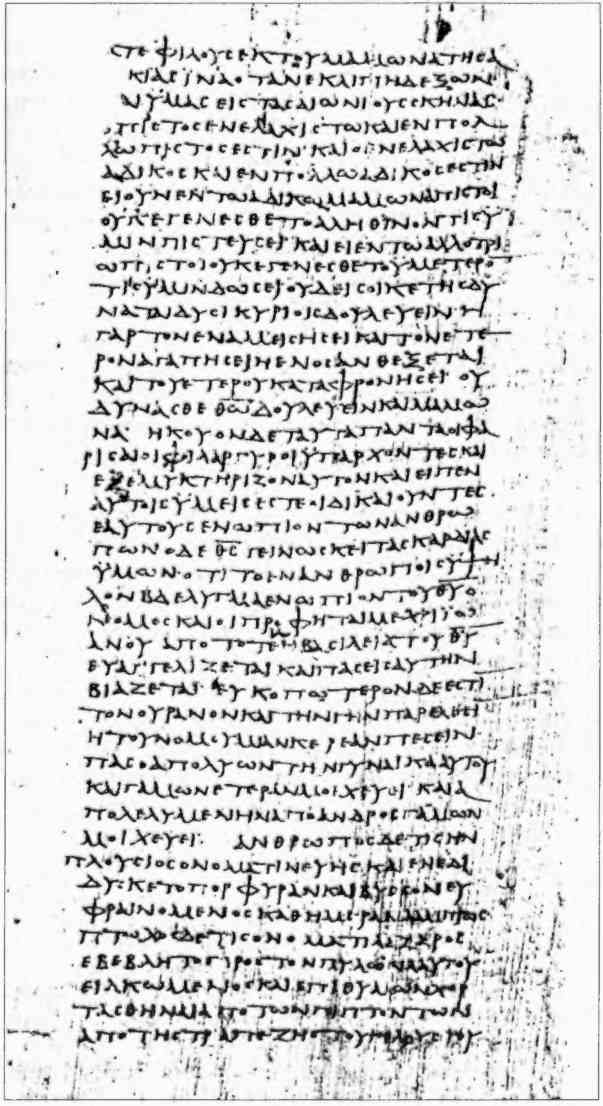 ϹΤΕΦΙΛΟΥϹΕΚΤΟΥΜΑΜΩΝΑΤΗϹΑ
ΚΙΑϹΙΝΑΟΤΑΝΕΚΛΙΠΗΔΕΞΩΝΤ
ΥΜΑϹΕΙϹΤΑϹΑΙΩΝΙΟΥϹϹΚΗΝΑϹ
ΟΠΙϹΤΟϹΕΝΕΛΑΧΙϹΤΩΚΑΙΕΝΠΟΛ
ΛΩΠΙϹΤΟϹΕϹΤΙΝ·ΚΑΙΟΕΝΕΛΑΧΙϹΤΩ
ΑΔΙΚΟϹΚΑΙΕΝΠΟΛΛΩΑΔΙΚΟϹΕϹΤΙΝ
ΕΙΟΥΝΕΝΤΩΑΔΙΚΩΜΑΜΩΝΑΠΙϹΤΟΙ
ΟΥΚΕΓΕΝΕϹΘΕΤΟΑΛΗΘΙΝΟΝΤΙϹΥ
ΜΙΝΠΙϹΤΕΥϹΕΙ·ΚΑΙΕΙΕΝΤΩΑΛΛΟΤΡΙ
ΩΠΙϹΤΟΙΟΥΚΕΓΕΝΕϹΘΕΤΟΥΜΕΤΕΡΟ
ΤΙϹΥΜΙΝΔΩϹΕΙΟΥΔΕΙϹΟΙΚΕΤΗϹΔΥ
ΝΑΤΑΙΔΥϹΙΚΥΡΙΟΙϹΔΟΥΛΕΥΕΙΝΗ
ΓΑΡΤΟΝΕΝΑΜΕΙϹΗϹΕΙΚΑΙΤΟΝΕΤΕ
ΡΟΝΑΓΑΠΗϹΕΙΗΕΝΟϹΑΝΘΕΞΕΤΑΙ
ΚΑΙΤΟΥΕΤΕΡΟΥΚΑΤΑΦΡΟΝΗϹΕΙ·ΟΥ
ΔΥΝΑϹΘΕΘ̅Ω̅ΔΟΥΛΕΥΕΙΝΚΑΙΜΑΜΩ
ΝΑ· ΗΚΟΥΟΝΔΕΤΑΥΤΑΠΑΝΤΑΟΙΦΑ
ΡΙϹΑΙΟΙΦΙΛΑΡΓΥΡΟΙΥΠΑΡΧΟΝΤΕϹΚΑΙ
ΕΞΕΜΥΚΤΗΡΙΖΟΝΑΥΤΟΝΚΑΙΕΙΠΕΝ
ΑΥΤΟΙϹΥΜΕΙϹΕϹΤΕΟΙΔΙΚΑΙΟΥΝΤΕϹ
ΕΑΥΤΟΥϹΕΝΩΠΙΟΝΤΩΝΑΝΘΡΩ
ΠΩΝΟΔΕΘ̅Ϲ̅ΓΕΙΝΩϹΚΕΙΤΑϹΚΑΡΔΙΑϹ
ΫΜΩΝ·ΟΤΙΤΟΕΝΑΝΘΡΩΠΟΙϹΥΨΗ
ΛΟΝΒΔΕΛΥΓΜΑΕΝΩΠΙΟΝΤΟΥΘ̅Υ̅Ο
ΝΟΜΟϹΚΑΙΟΙΠΡΟΦΗΤΑΙΜΕΧΡΙΪΩ
ΑΝΟΥΑΠΟΤΟΤΕΗΒΑϹΙΛΕΙΑΤΟΥΘ̅Υ̅
ΕΥΑΓΓΕΛΙΖΕΤΑΙΚΑΙΠΑϹΕΙϹΑΥΤΗΝ
ΒΙΑΖΕΤΑΙ·ΕΥΚΟΠΩΤΕΡΟΝΔΕΕϹΤΙ
ΤΟΝΟΥΡΑΝΟΝΚΑΙΤΗΝΓΗΝΠΑΡΕΛΘΕΙ
ΗΤΟΥΝΟΜΟΥΜΙΑΝΚΕΡΕΑΝΠΕϹΕΙΝ
ΠΑϹΟΑΠΟΛΥΩΝΤΗΝΓΥΝΑΙΚΑΑΥΤΟΥ
ΚΑΙΓΑΜΩΝΕΤΕΡΑΝΜΟΙΧΕΥΕΙΚΑΙΑ
ΠΟΛΕΛΥΜΕΝΗΝΑΠΟΑΝΔΡΟϹΓΑΜΩΝ
ΜΟΙΧΕΥΕΙ· ΑΝΘΡΩΠΟϹΔΕΤΙϹΗΝ
ΠΛΟΥϹΙΟϹΟΝΟΜΑΤΙΝΕΥΗϹΚΑΙΕΝΕΔΙ
ΔΥϹΚΕΤΟΠΟΡΦΥΡΑΝΚΑΙΒΥϹϹΟΝΕΥ
ΦΡΑΙΝΟΜΕΝΟϹΚΑΘΗΜΕΡΑΝΛΑΜΠΡΩϹ
ΠΤΩΧΟϹΔΕΤΙϹΟΝΟΜΑΤΙΛΑΖΑΡΟϹ
ΕΒΕΒΛΗΤΟΠΡΟϹΤΟΝΠΥΛΩΝΑΑΥΤΟΥ
ΕΙΛΚΩΜΕΝΟϹΚΑΙΕΠΙΘΥΜΩΝΧΟΡ
ΤΑϹΘΗΝΑΙΑΠΟΤΩΝΠΙΠΤΟΝΤΩΝ
ΑΠΟΤΗϹΤΡΑΠΕΖΗϹΤΟΥΠΛΟΥϹΙΟΥ